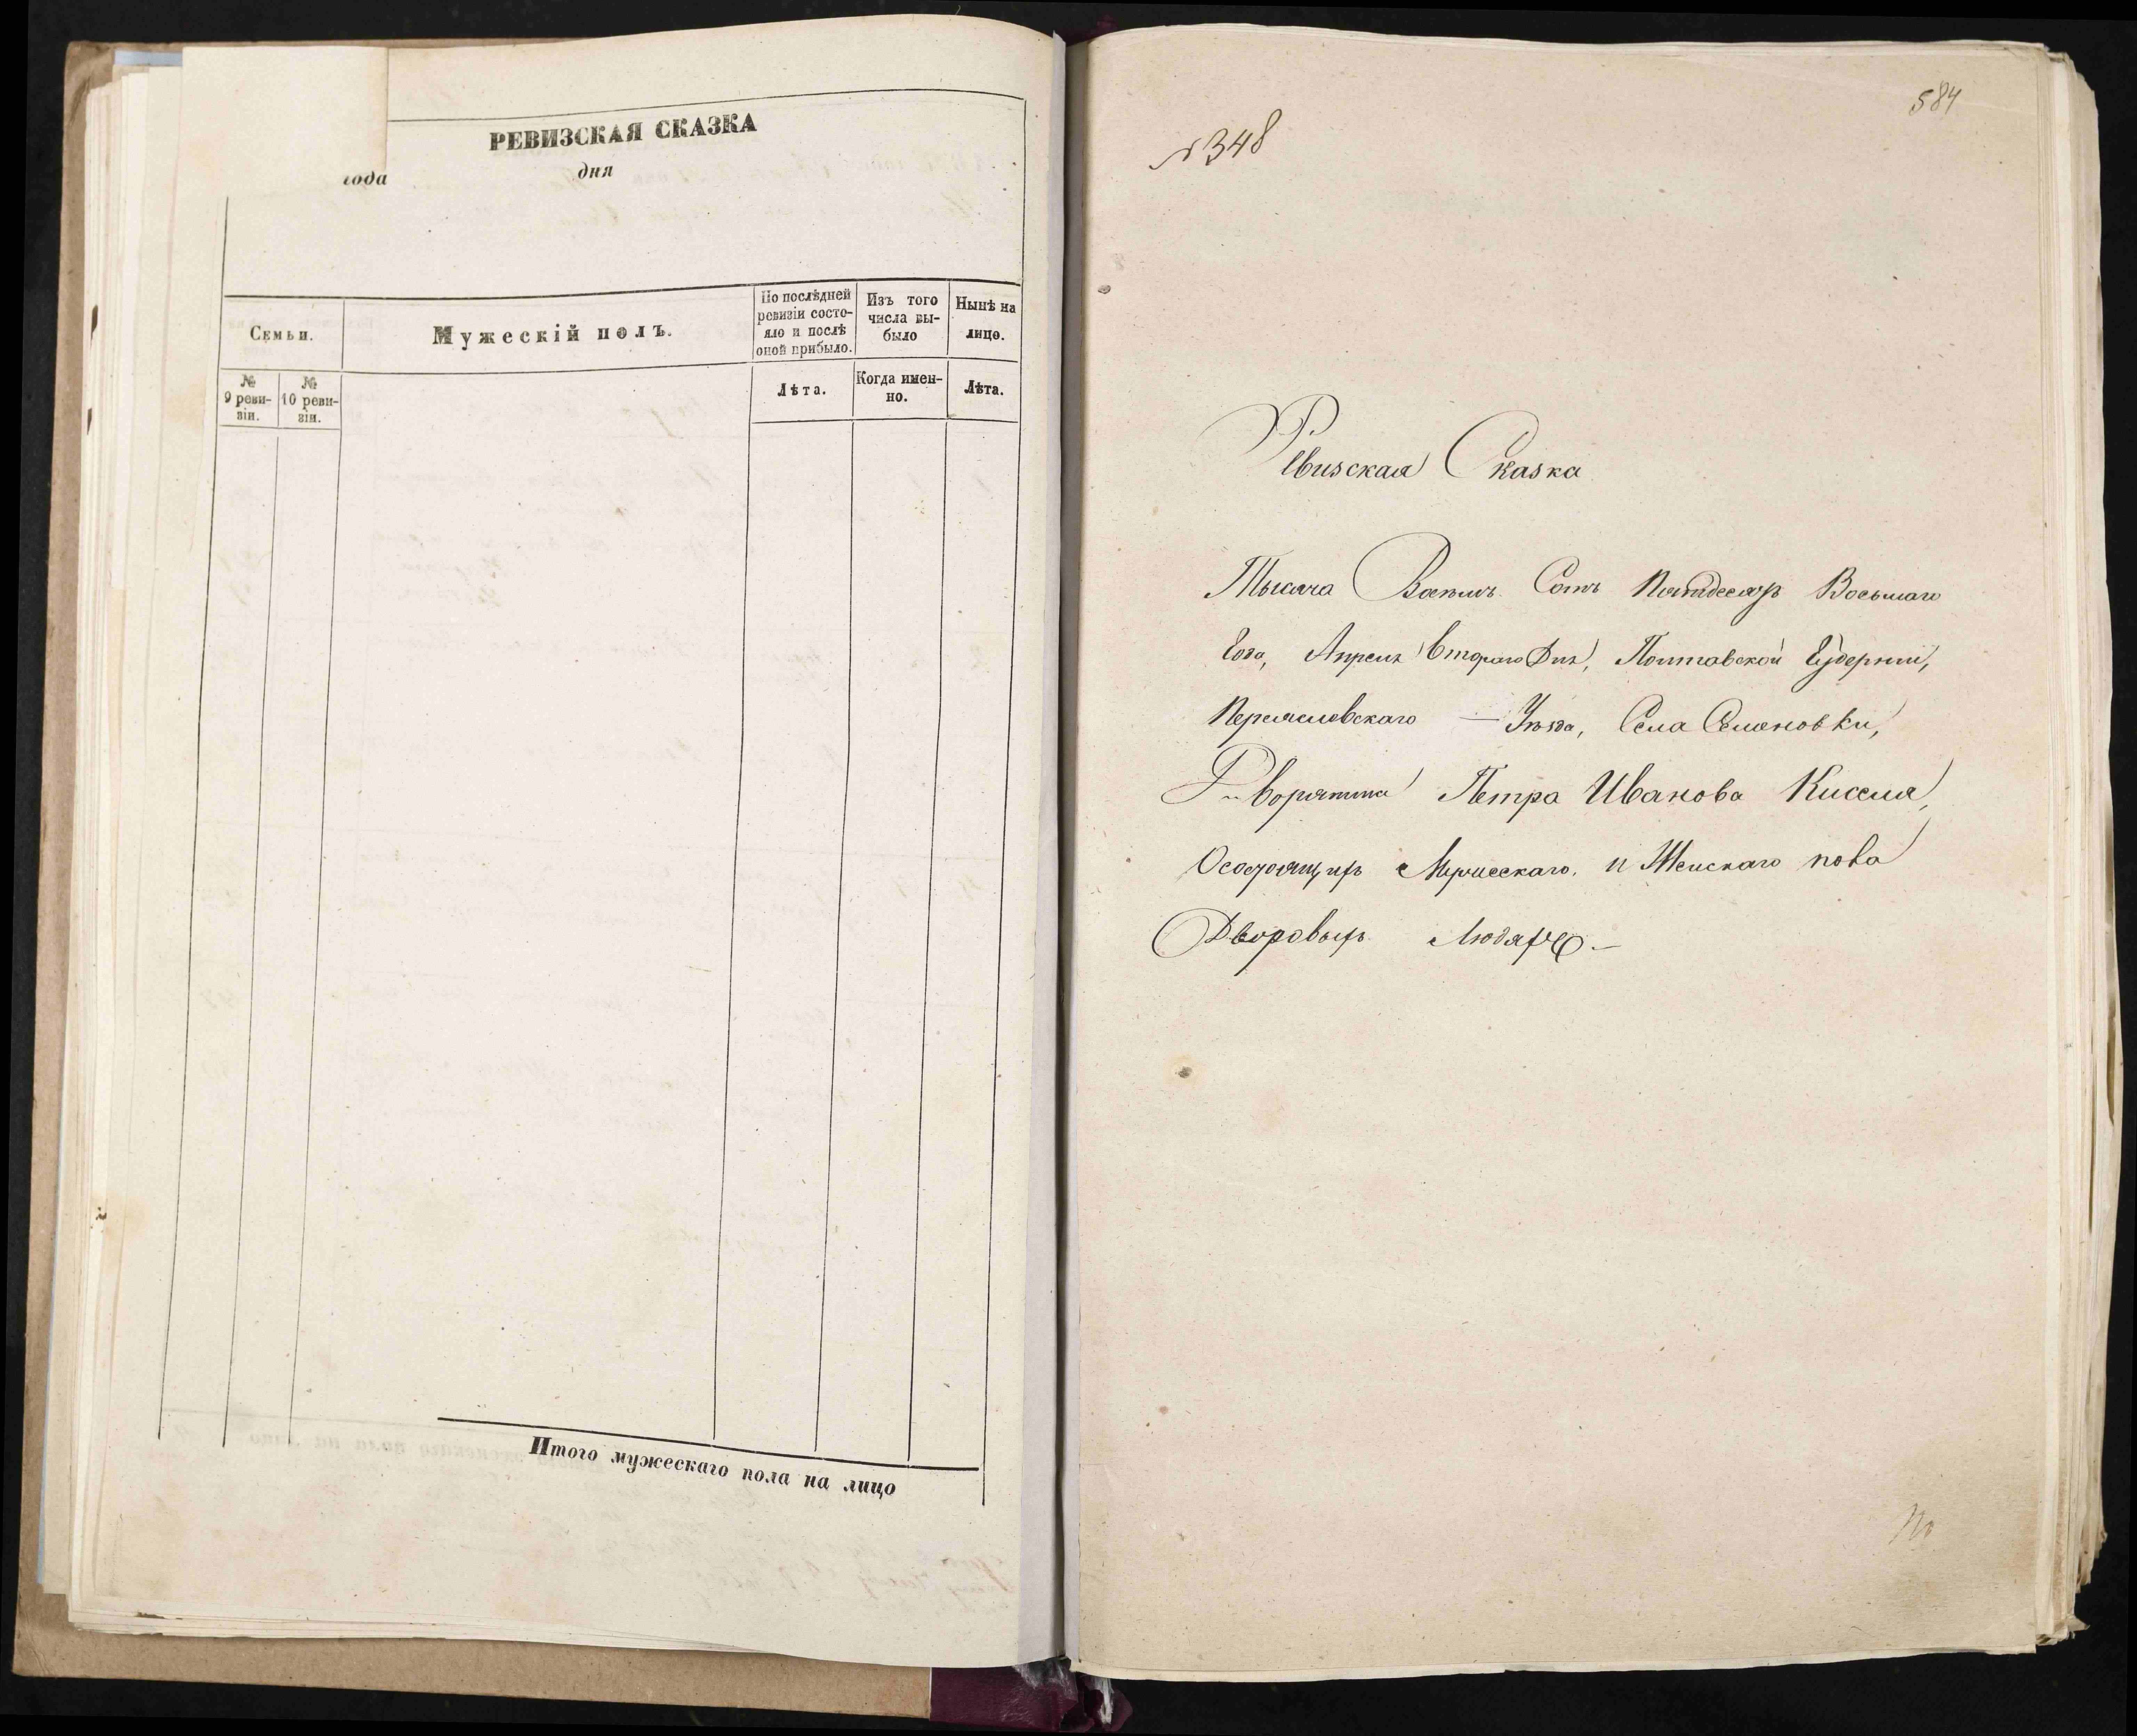 РЕВИЗСКАЯ СКАЗКА
года дня
Семьи.
Мужескій полъ.
По послѣдней
ревизіи состо-
яло и послѣ
оной прибыло.
Изъ того
числа вы-
было
Нынѣ на
лицо.
№
9 реви-
зіи.
№
10 реви-
зіи.
Лѣта.
Когда имен-
но.
Лѣта.
Итого мужескаго пола на лицо
584
№ 348
Ревизская Сказка
Тысяча Восемъ Сотъ Пятдесятъ Восьмаго
Года, Апреля Втораго Дня, Полтавской Губернии,
Переяславского Уѣзда, Села Семеновки,
Дворянина Петра Иванова Киселя,
О состоящихъ Мужескаго и Женскаго пола
Дворовыхъ Людяхъ